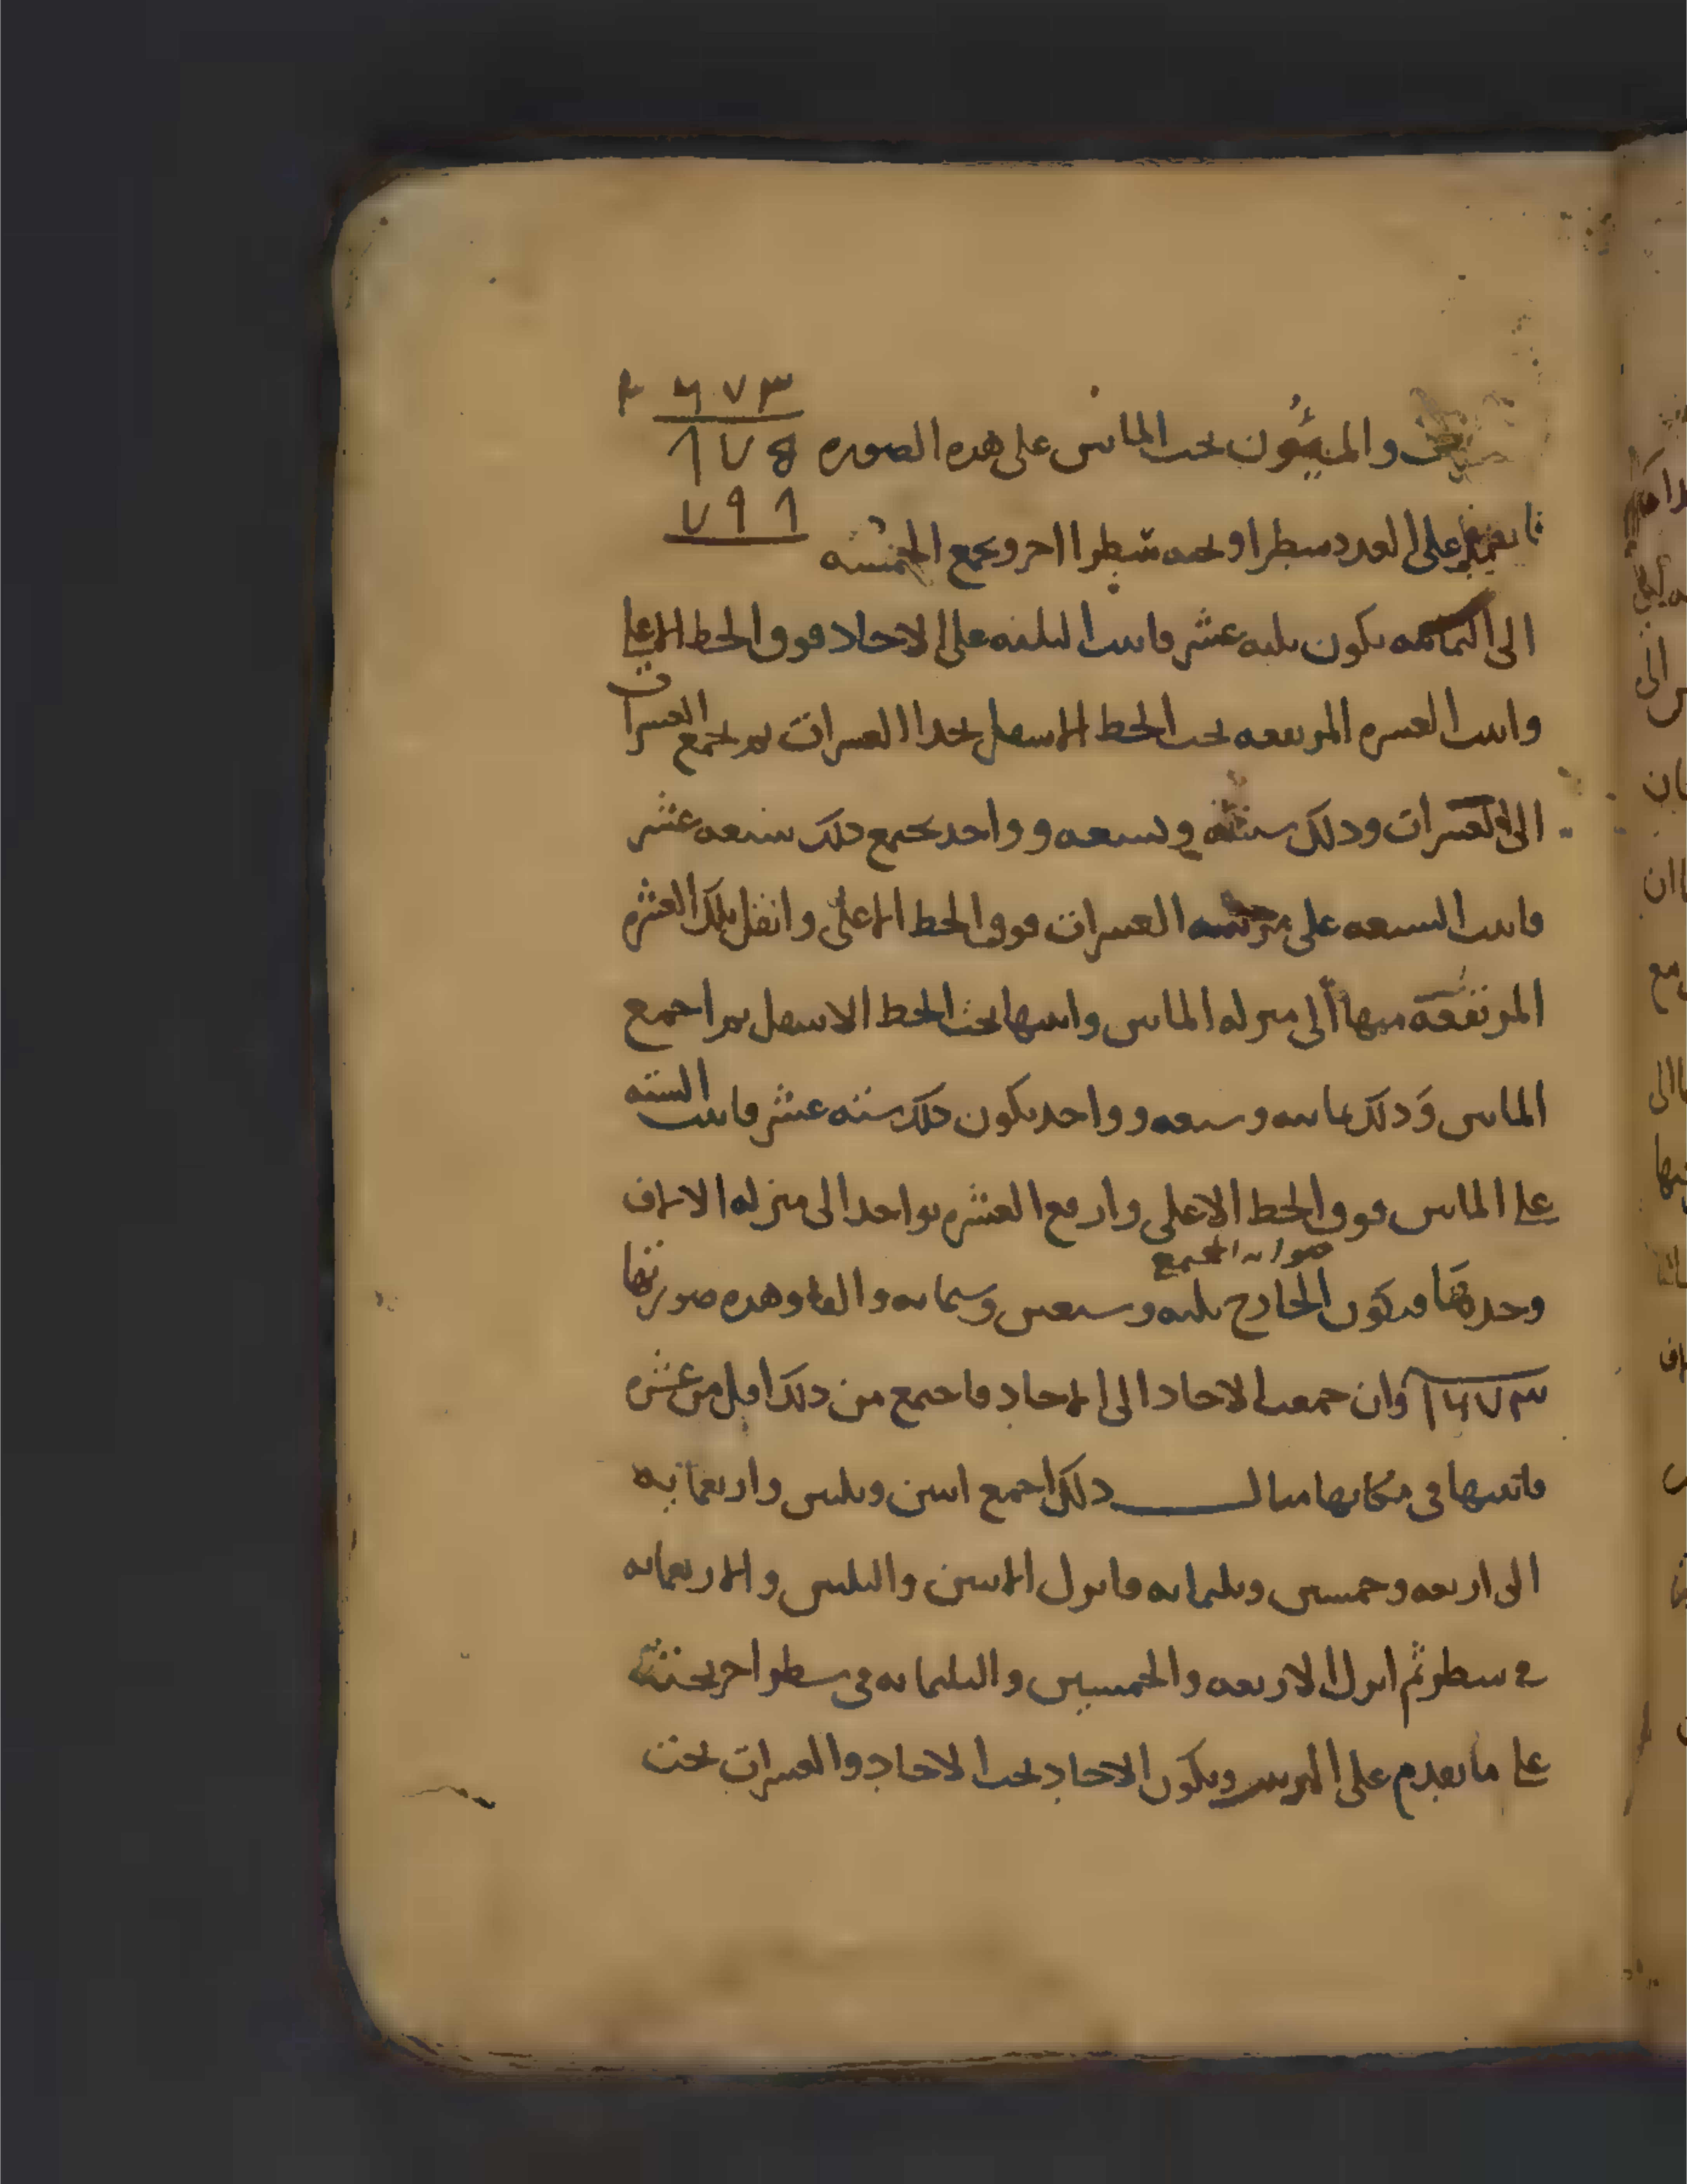 ١ ٦ ٧ ٣
٨ ٧ ٥
٧ ٩ ٨
والمئون تحت الماىىں على هده الصوره
على العدد سطرا وتحته سطرا اخر وتجمع الخمسه
الى الثمانيه يكون ثلثه عشر فاثبت الثلثه على الاحاد فوق الخط الاعلى
واثبت العشره المرتفعه تحت الخط الاسفل بحدا العشرات ثم تجمع العشرات
الى العشرات ودلك سته وتسعه وواحد تجمع دلك سبعه عشر
فاثبت السبعه على مرتبه العشرات فوق الخط الاعلى وانقل تلك العشره
المرتفعه منها الى منزله الماتىں واثبتها تحت الخط الاسفل ثم اجمع
الماتىں ودلك ثمانيه وسبعه وواحد يكون دلك سته عشر فاثبت السته
على الماتىں فوق الخط الاعلى وارفع العشره بواحد الى منزله الالاف
وحدها فيكون الخارج ثلثه وسبعين وستمايه والفا وهده صورتها
صوابه المجتمع
١٦٧٣ وان جمعت الاحاد الى الاحاد فاجتمع من دلك اقل من عشره
فاثبتها في مكانها مثال دلك اجمع اثنين وثلثين واربعمايه
الى اربعه وخمسين وثلثمايه فانزل الاثنين والثلثين والاربعمايه
في سطر ثم انزل الاربعه والخمسين والثلثمايه في سطر اخر تحته
على ما تقدم على الترتيب ويكون الاحاد تحت الاحاد والعشرات تحت